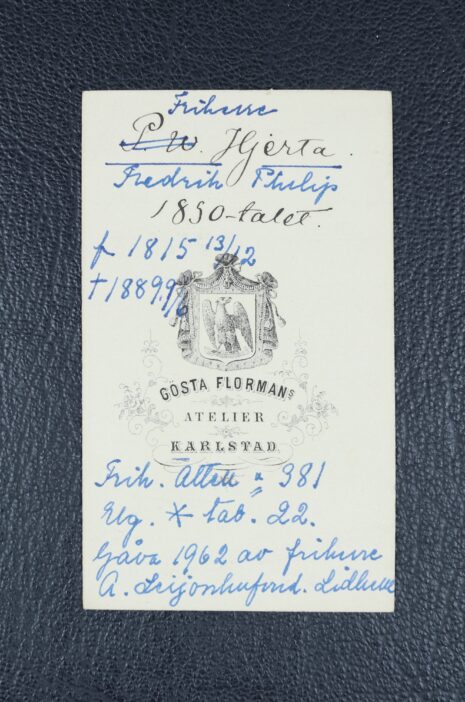 Friherre
P. W. Hjerta.
Fredrik Philip
1850-talet.
f 1815 13/12
† 1889 9/6
GÖSTA FLORMANS
ATELIER
KARLSTAD
Frih. Ätten 381
Elg. * tab. 22.
Gåva 1962 av friherre
A. Leijonhufvud. Lidhem